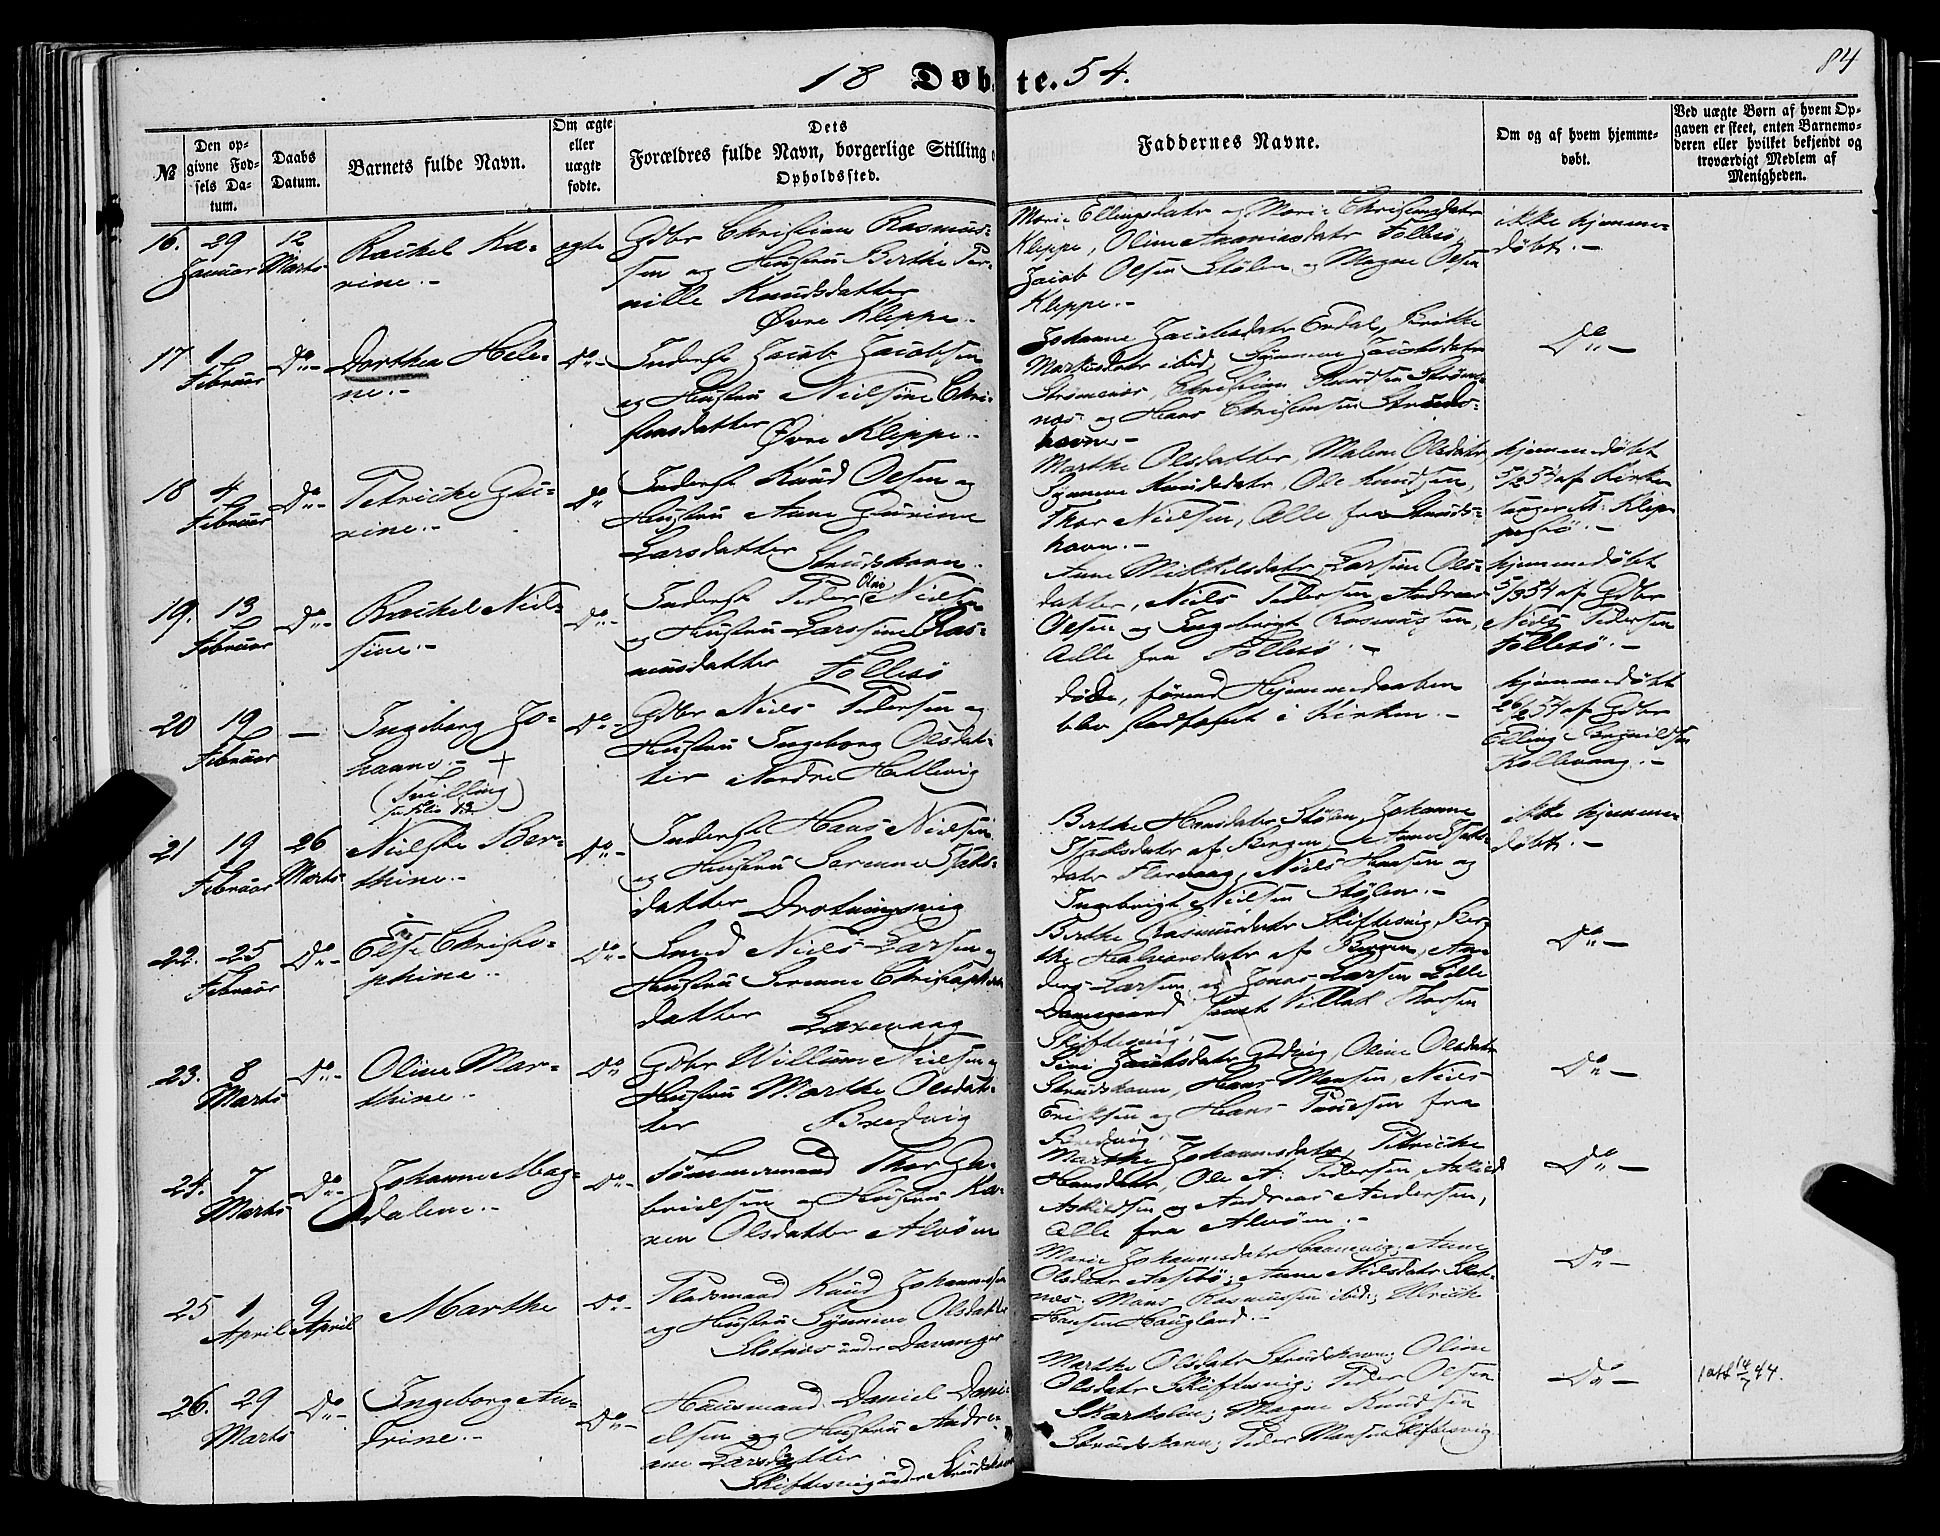 84
18 Døbte. 54.
№
Den opgivne Fødsels Datum.
Daabs Datum.
Barnets fulde Navn.
Om ægte eller uægte fødte.
Dets Forældres fulde Navn, borgerlige Stilling o
Opholdssted.
Faddernes Navne.
Om og af hvem hjemmedøbt.
Ved uægte Børn af hvem Opgaven er skeet, enten Barnemoderen eller hvilket bekjendt og troværdigt Medlem af Menigheden.
16. 29 Januar 12 Marts
Rachel Ka-
rine.-
ægte
Gdbr Christian Rasmus-
sen og Hustru Birthe Per-
nille Knudsdatter
Øvre Kleppe.-
Marie Ellingsdatr og Marie Christensdatr
Kleppe, Oline Ananiasdatr Follesø,
Jacob Olsen Stølen og Magne Olsen
Kleppe.-
ikke hjemme-
døbt.-
17 1 Februar Do-
Dorthea Hele-
ne.-
Do-
Inderst Jacob Jacobsen
og Hustru Nielsine Chri-
stensdatter Øvre Kleppe.-
Johanne Jacobsdatr Erdal, Birthe
Markusdatr ibid, Synneve Jacobsdatr
Strømsnes, Christian Knudsen Strøms-
næs og Hans Christensen Struds-
havn-
Do-
18 4 Februar Do-
Petricke Gu-
rine.-
Do
Inderst Knud Olsen og
Hustru Anne Gurine
Larsdatter Strudshavn.
Marthe Olsdatter, Malene Olsdatr,
Synneve Knudsdatr, Ole Knudsen,
Thor Nielsen, Alle fra Struds-
havn.-
hjemmedøbt
5/2 54 af Kirke-
sanger M: Klep-
pestø.-
19. 13 Februar Do-
Rachel Niel-
sine.-
Do-
Inderst Peder Olai Nielsen
og Hustru Larssine Ras-
musdatter Follesø
Anne Mikkelsdatr, Larsine Ols-
datter, Niels Pedersen, Andreas
Olsen og Ingebrigt Rasmussen,
Alle fra Follesø.-
hjemmedøbt
5/3 54 af Gdbr
Niels Pedersen
Follesø.-
20 19 Februar —
Ingeborg Jo-
hanne.- +
(Tvilling
Do-
Gdbr Niels Pedersen og
Hustru Ingeborg Olsdat-
ter Nordre Hetlevig
døde, førend Hjemmedaaben
blev stadfæstet i Kirken.-
hjemmedøbt
26/2 54 af Gdbr
Elling
Kollevaag.-
21 19 Februar 26 Marts
Nielske Ber-
thine.-
Do-
Inderst Hans Nielsen
og Hustru Serenne Isaks-
datter Drotningsvig
Birthe Hansdatr Stølen, Johanne
Isaksdatr af Bergen, Anne Isaks-
datr Florvaag, Niels Hansen og
Ingebrigt Nielsen Stølen.-
ikke hjemme-
døbt.-
22. 25 Februar Do-
Else Christo-
phine.
Do-
Smed Niels Larsen og
Hustru Serenne Christophers
datter Laxevaag
Birthe Rasmusdatr Skiftesvig, Ber-
the Halvorsdatr af Bergen, An-
ders Larsen og Jonas Larsen Lille
Damsgaard samt Villak Thorsen
Skiftesvig.-
Do-
23. 8 Marts Do-
Oline Mar-
thine.
Do
Gdbr Willum Nielsen og
Hustru Marthe Olsdat-
ter Bredvig
Sini Jacobsdatr Godvig, Oline Olsdatr
Strudshavn, Hans Monsen, Niels
Eriksen og Hans Poulsen fra
Bredvig.-
Do-
24. 7 Marts Do-
Johanne Mag-
dalene.-
Do-
Tømmermand Thor Ga-
brielsen og Hustru Ka-
ren Olsdatter Alvøen
Marthe Johannesdatr, Petricke
Hansdatr, Ole A: Pedersen, Askild
Askildsen og Andreas Andersen,
Alle fra Alvøen.-
Do-
25 1 April 9 April
Marthe
Do-
Pladsmand Knud Johannesen
og Hustru Synneve Olsdatter
Skotnæs under Davanger
Marie Johannesdatr Hanevig; Anne
Olsdatr Aasebø; Anne Nielsdatr Skot-
næs; Mons Rasmussen ibid; Ulrich
Hansen Haugland.-
Do-
26. 29 Marts Do-
Ingeborg An-
drine.-
Do-
Huusmand Daniel Dani-
elsen og Hustru Andri-
ane Larsdatter
Skiftesvig under Strudshavn
Marthe Olsdatr Strudshavn; Oline
Olsdatr Skiftesvig; Peder Olsen
Skarholm; Magne Knudsen
Strudshavn; Peder Monsen Skiftesvig.
Do-
1 att 14/7 44.